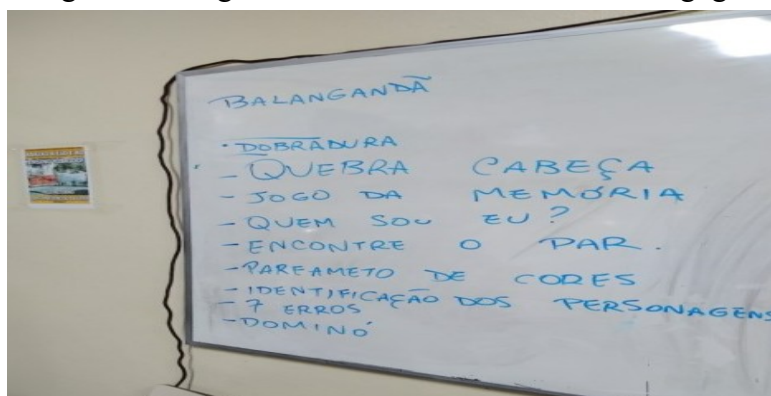 BALANGANDÃ
• DOBRADURA
- QUEBRA CABEÇA
- JOGO DA MEMÓRIA
- QUEM SOU EU?
- ENCONTRE O PAR.
- PAREAMETO DE CORES
- IDENTIFICAÇÃO DOS PERSONAGENS
- 7 ERROS
- DOMINÓ